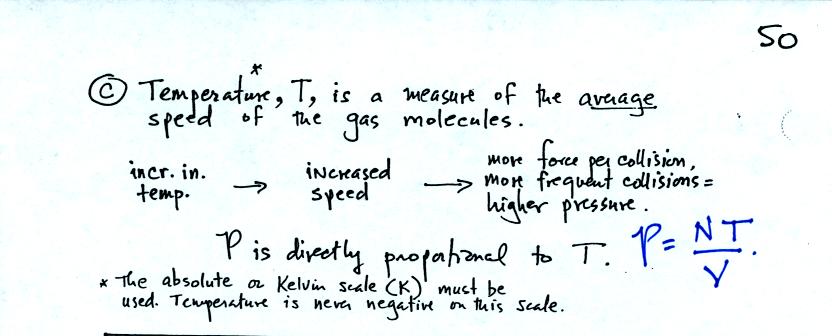 50
ⓒ Temperature*, T, is a measure of the average
speed of the gas molecules.
incr. in. temp. → increased speed → more force per collision,
more frequent collisions =
higher pressure.
P is directly proportional to T. P = NT/V.
* The absolute or Kelvin scale (K) must be
used. Temperature is never negative on this scale.